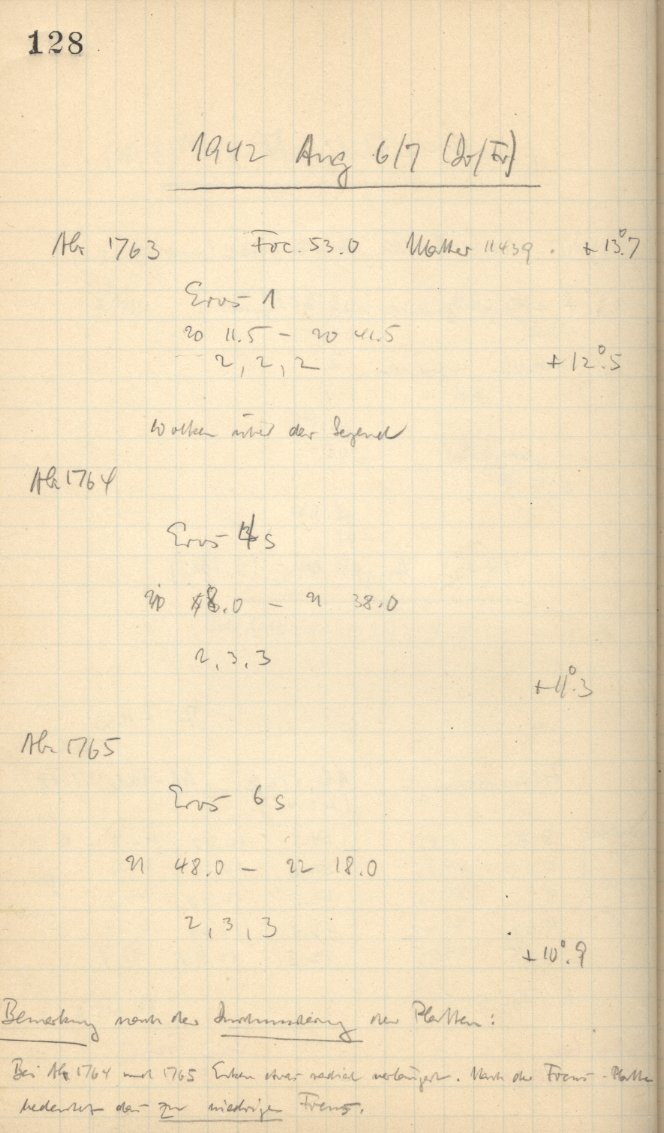 128
1942 Aug 6/7 (Do/Fr)
Abr 1763 Foc. 53.0 Matter 11439. +13°.7
Eros 1
20 11.5 – 20 41.5
2, 2, 2
+12°.5
Wolken über der Gegend
Abr 1764
Eros 4 s
.0 – 21 38.0
2, 3, 3
+11°.3
Abr 1765
Eros 6 s
21 48.0 – 22 18.0
2, 3, 3
+10°.9
Bemerkung nach der Durchmusterung der Platten:
Bei Abr 1764 und 1765 Ecken etwas radial verlängert. Nach der Focus-Platte
bedeutet das zu niedrigen Focus.